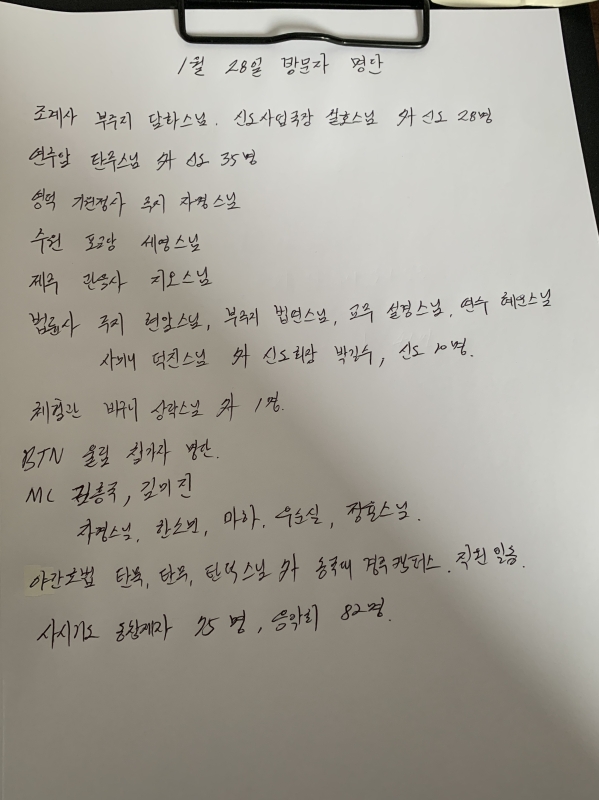 1월 28일 방문자 명단
조계사 부주지 담화스님. 신도사업국장 설호스님 外 신도 28명
연주암 탄무스님 外 신도 35명
영덕 기원정사 주지 자경스님
수원 포교당 세영스님
제주 관음사 지오스님
법륜사 주지 현암스님, 부주지 법연스님, 교무 설경스님, 연수 혜연스님
사미니 덕진스님 外 신도회장 박길수, 신도 10명.
체험관 비구니 상락스님 外 1명.
BTN 울림 참가자 명단.
MC 김흥국, 김미진
자경스님, 한소빈, 마하, 우순실, 정효스님.
야간호법 탄묵, 탄무, 탄덕스님 外 동국대 경주캠퍼스. 직원 일동.
사시기도 동참제자 75명, 음악회 82명.